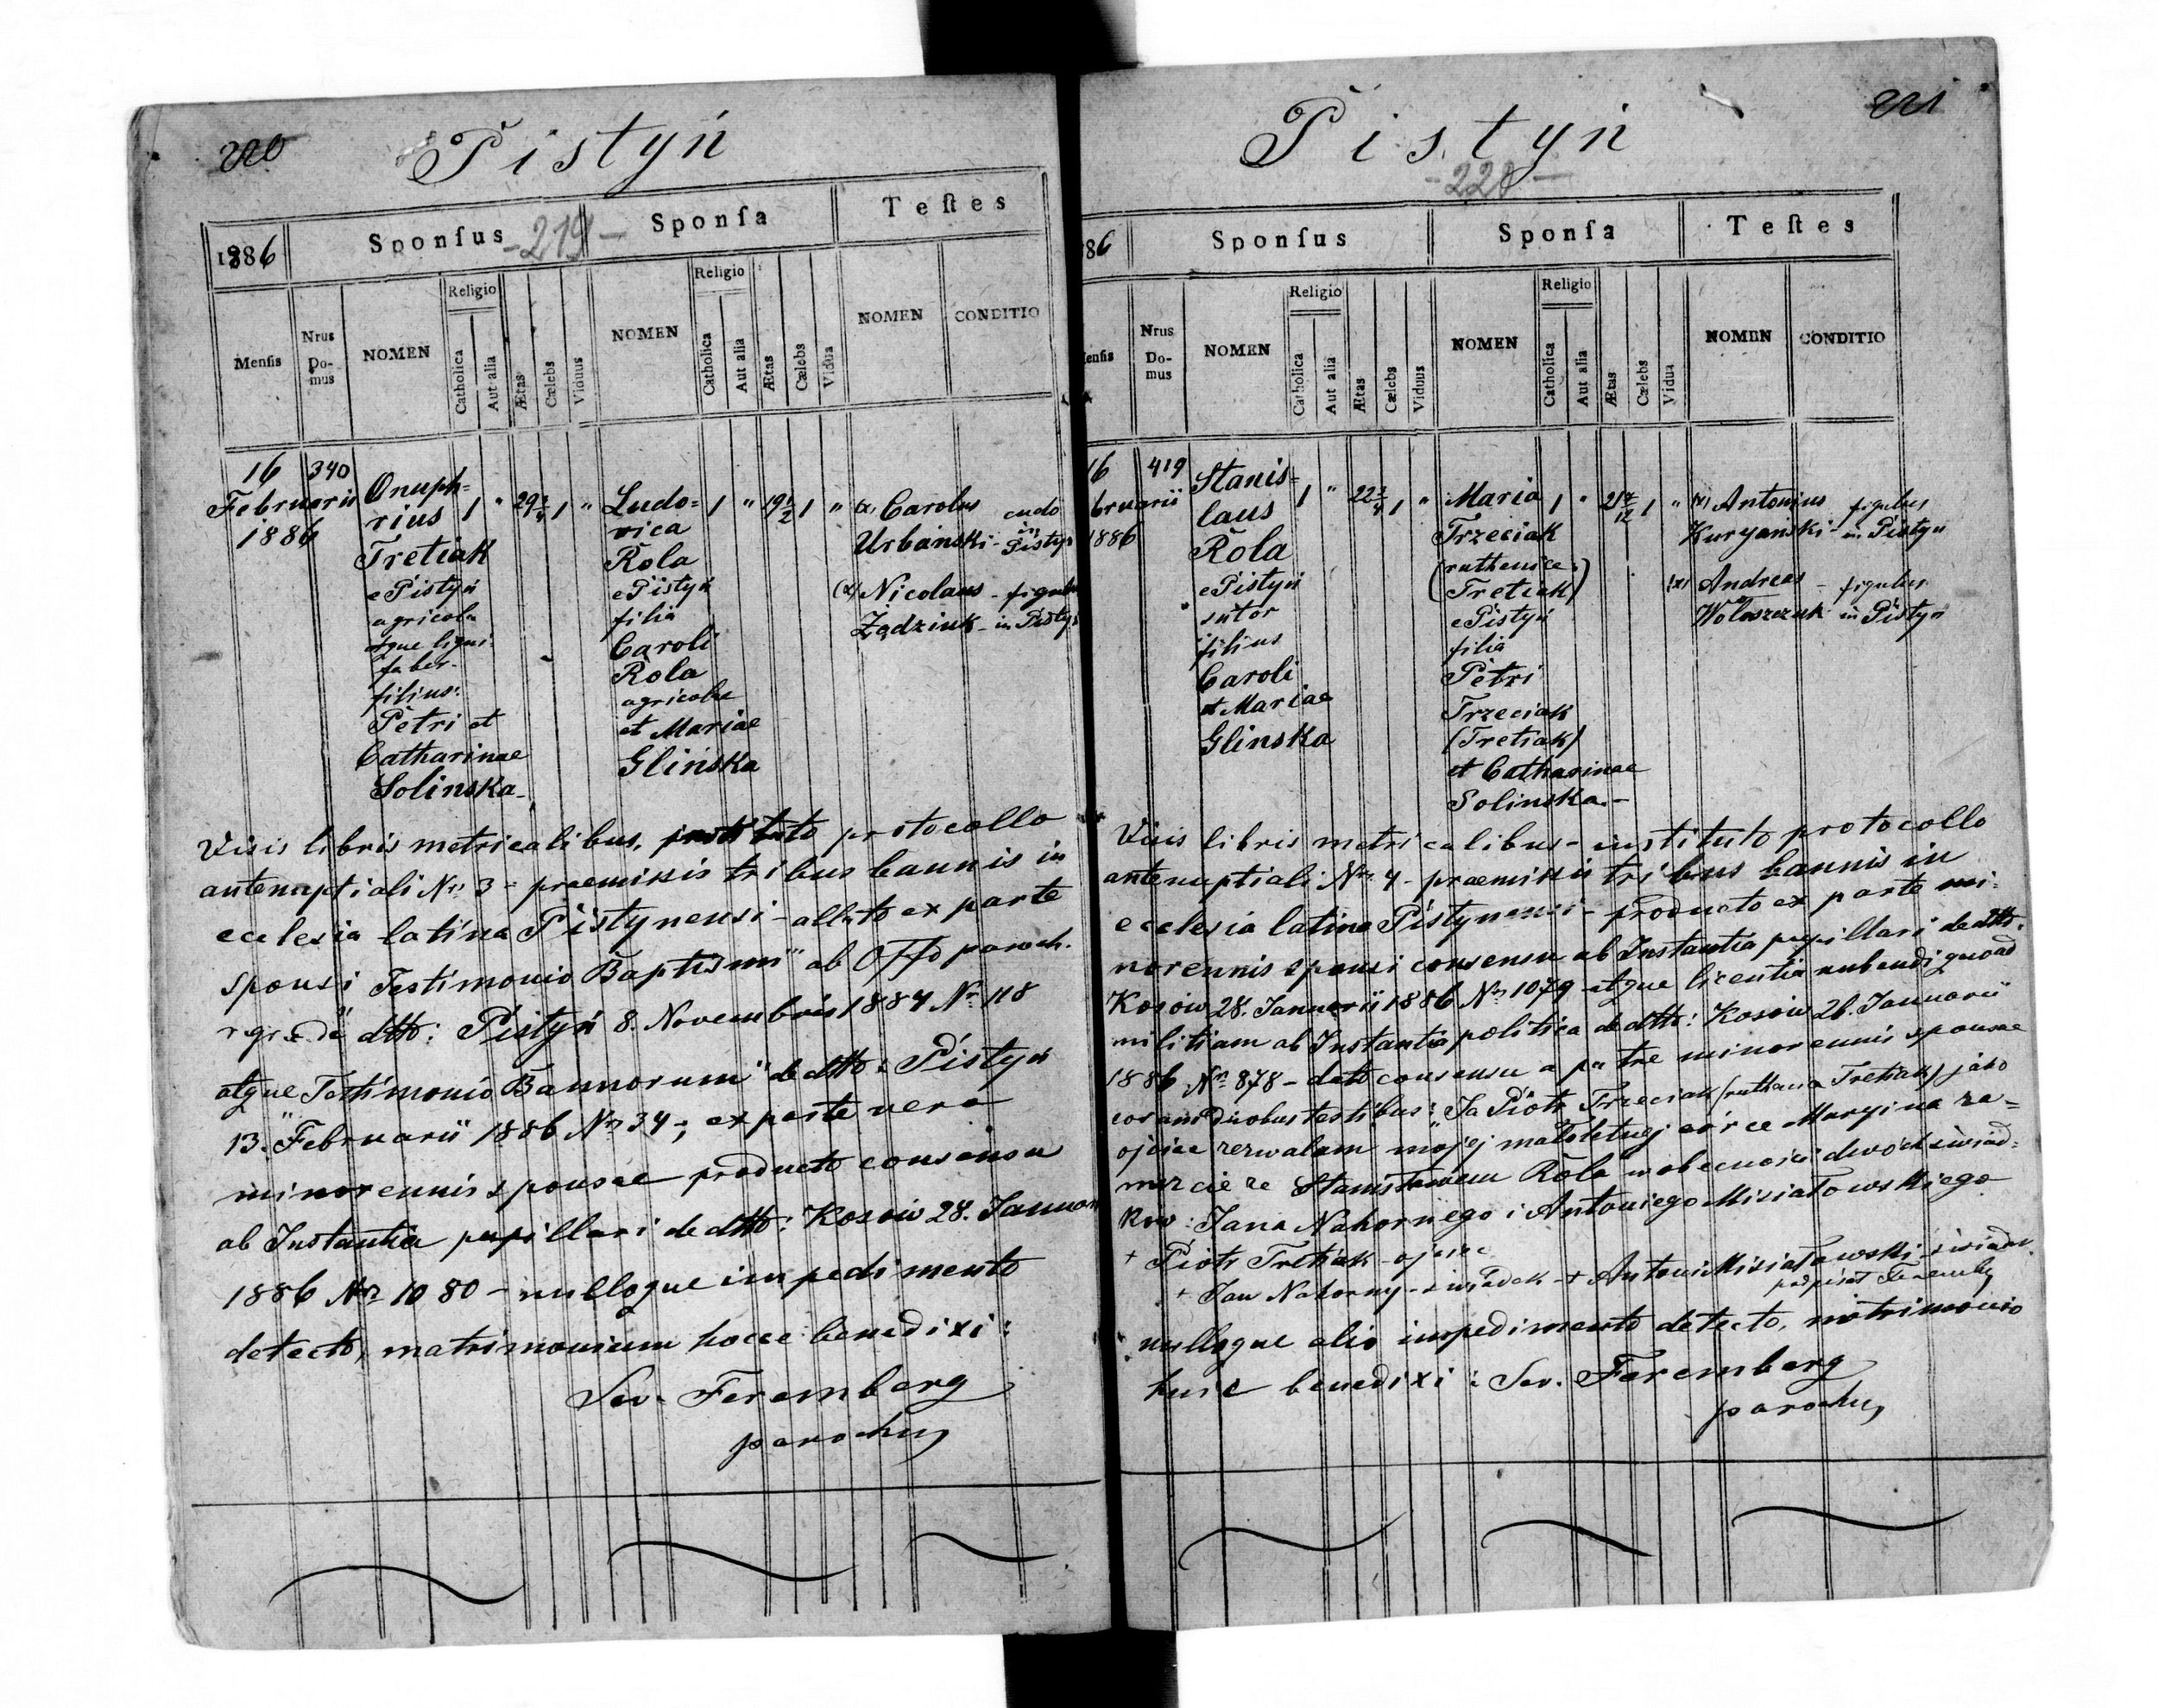 220
Pistyń
-219-
1886
Sponſus
Sponſa
Teſtes
Menſis
Nrus Do-mus
NOMEN
Religio
Catholica
Aut alia
Ætas
Cælebs
Viduus
NOMEN
Religio
Catholica
Aut alia
Ætas
Cælebs
Vidua
NOMEN
CONDITIO
16
Februarii
1886
340
Onuph=
rius
Tretiak
e Pistyń
agricola
atque ligni
faber
filius:
Petri et
Catharinae
Solinska
1 " 29 1 "
Ludo=
vica
Rola
e Pistyń
filia
Caroli
Rola
agricolae
et Mariae
Glińska
1 " 19 1/2 1 "
(x) Carolus cudo
Urbański - in Pistyń
(x) Nicolaus - figulus
Żądziuk - in Pistyń
Visis libris metricalibus, instituto protocollo
antenuptiali Nr 3 - praemissis tribus bannis in
ecclesia latina Pistynensi - allato ex parte
sponsi Testimonio Baptismi" ab Offo paroch.
gr. de dtto: Pistyń 8. Novembris 1884 Nr 118
atque "Testimonio Bannorum" de dtto: Pistyń
13. Februarii 1886 Nr 34 -; ex parte vero
minorennis sponsae producto consensu
ab Instantia pupillari de dtto: Kosów 28. Januar
1886 Nr 1080 - nulloque impedimento
detecto, matrimonium hocce benedixi:
Sev. Feremberg
parochus
221
Pistyń
-220-
86
Sponſus
Sponſa
Teſtes
enſis
Nrus Do-mus
NOMEN
Religio
Catholica
Aut alia
Ætas
Cælebs
Viduus
NOMEN
Religio
Catholica
Aut alia
Ætas
Cælebs
Vidua
NOMEN
CONDITIO
16
bruarii
1886
419
Stanis=
laus
Rola
e Pistyń
sutor
filius
Caroli
et Mariae
Glinska
1 " 22 3/4 1 "
Maria
Trzeciak
(ruthenice:
Tretiak)
e Pistyń
filia
Petri
Trzeciak
(Tretiak)
et Catharinae
Solinska.-
1 " 21 7/12 1 "
(x) Antonius figulus
Kuryański - in Pistyń
(x) Andreas - figulus
Wołoszczuk in Pistyń
Visis libris metricalibus - instituto protocollo
antenuptiali Nr 4 - praemissis tribus bannis in
ecclesia latina Pistynensi - producto ex parte mi=
norennis sponsi consensu ab Instantia pupillari de dtto.
Kosów 28. Januarii 1886 Nr 1079 atque licentia nubendi quoad
militiam ab Instantia politica de dtto: Kosów 26. Januarii
1886 Nr 878 - dato consensu a patre minorennis sponsae
coram duobus testibus: "Ja Piotr Trzeciak (ruthene Tretiak) jako
ojciec zezwalam mojej małoletniej córce Maryi na za=
mezcie ze Stanisławem Rola w obecności dwóch świad=
ków: Jana Nahornego i Antoniego Misiatowskiego
+ Piotr Tretiak - ojciec
+ Jan Nahorny - świadek + Antoni Misiatowski - świadek
podpisał Feremberg
nulloque alio impedimento detecto, matrimonio
huic benedixi: Sev. Feremberg
parochus